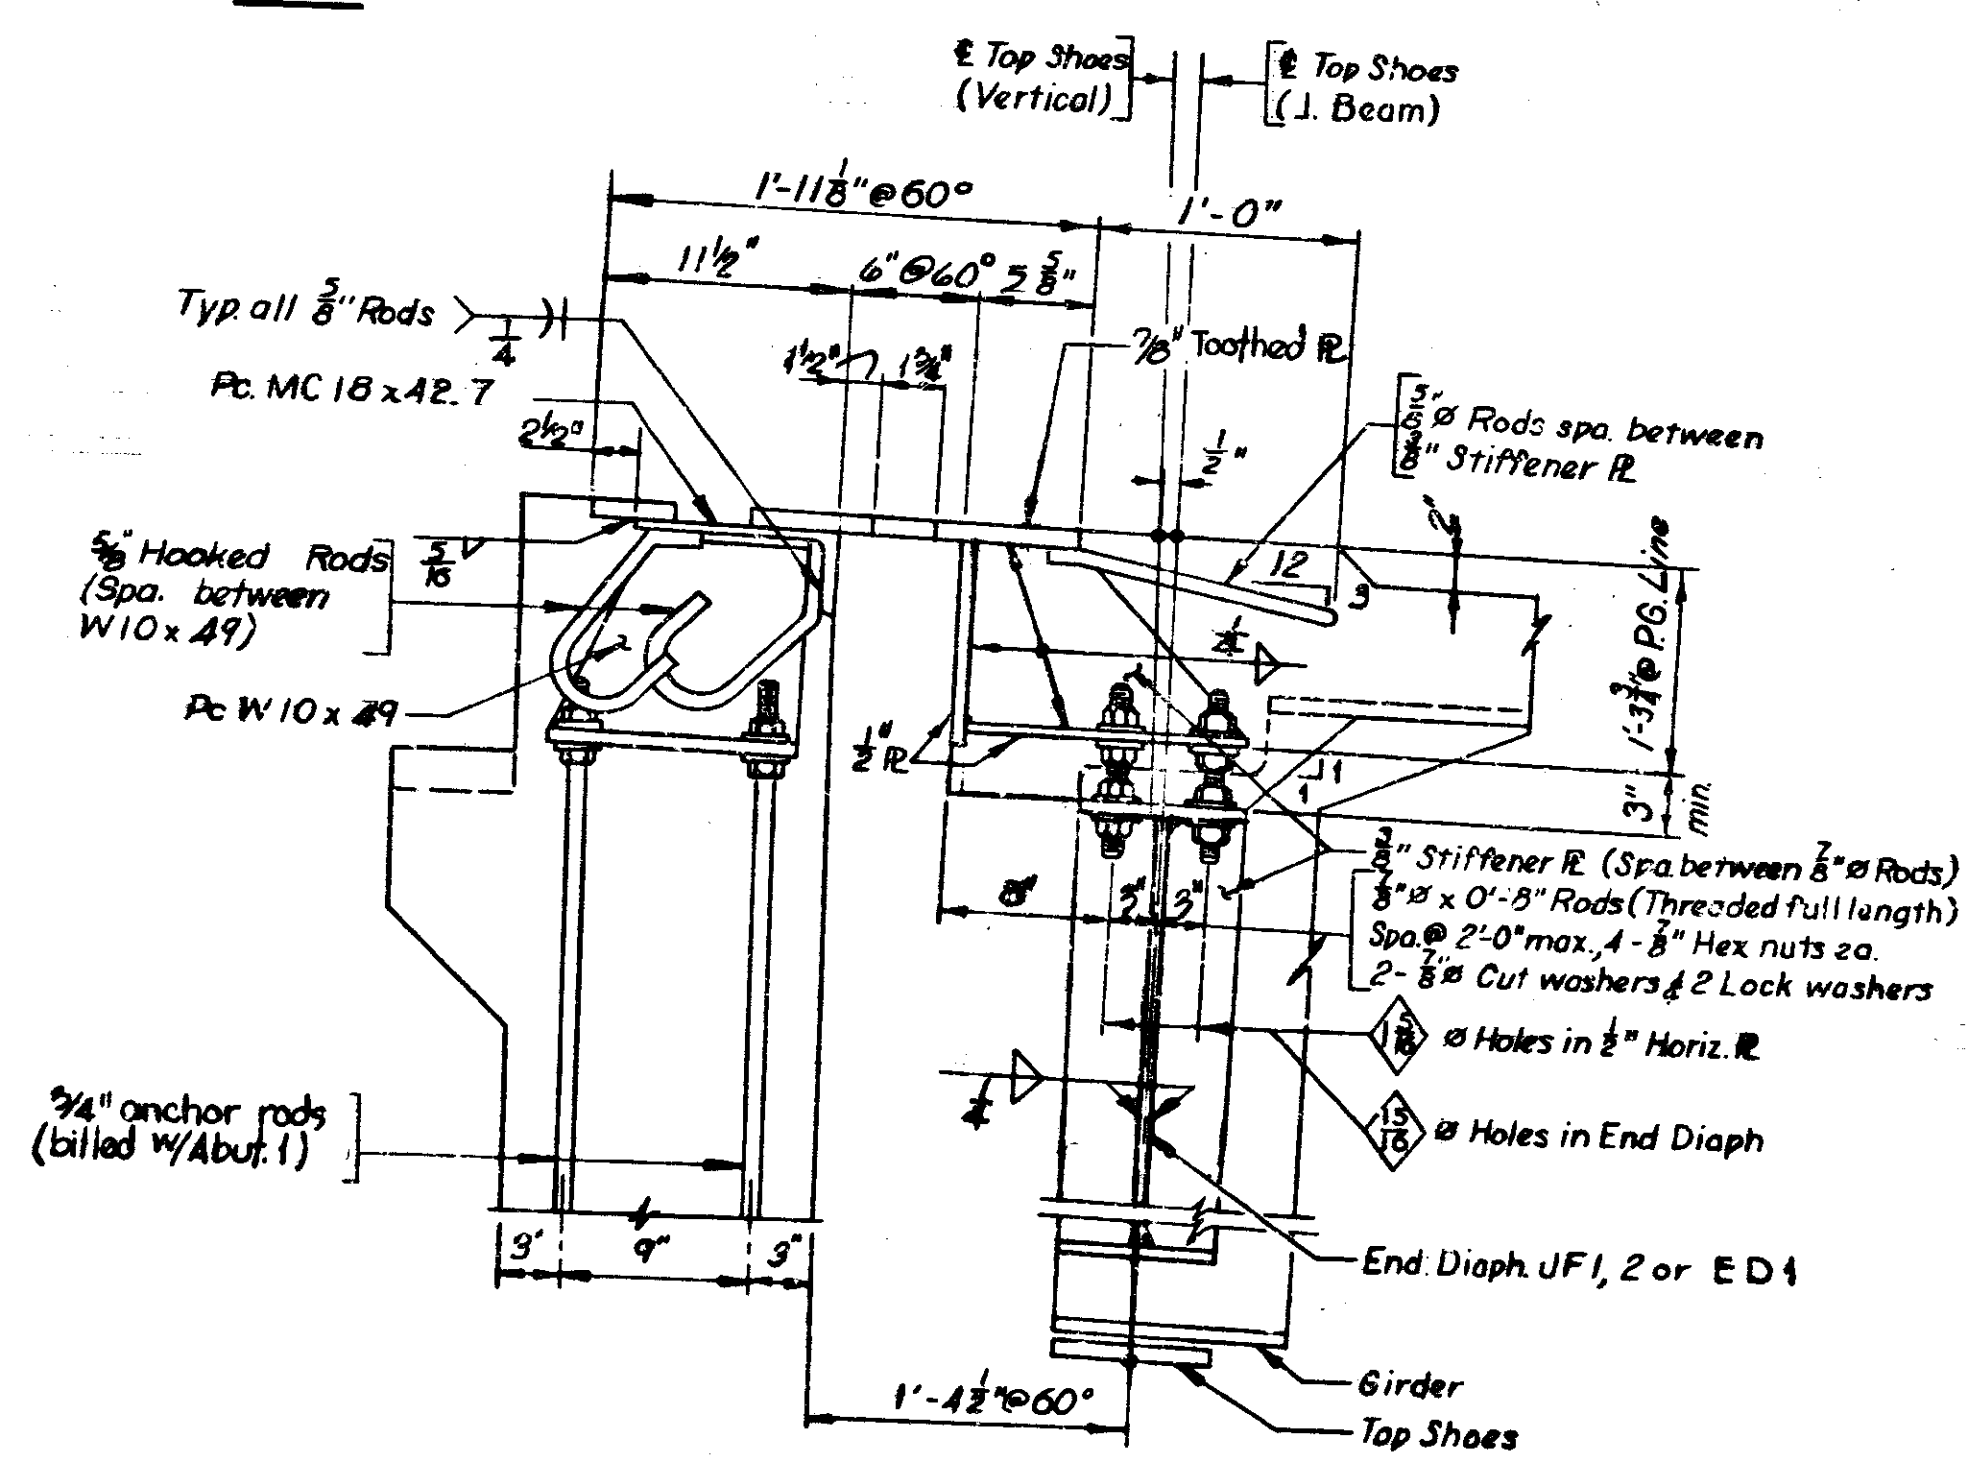 ℄ Top Shoes
(Vertical)
℄ Top Shoes
(⊥. Beam)
1'-11 1/8" @ 60°
1'-0"
11 1/2"
6" @ 60°
5 5/8"
Typ. all 5/8" Rods
1/4
7/8" Toothed ℙL
1 1/2"
1 3/4"
Pc. MC 18 x 42.7
2 1/2"
5/8" Ø Rods spa. between
3/8" Stiffener ℙL
1/2"
2"
5/8" Hooked Rods
(Spa. between
W 10 x 49)
5/16
12
3
1/4
1'-3 3/4" @ P.G. Line
Pc W 10 x 49
1/2" ℙL
1
1
3"
min.
3/8" Stiffener ℙL (Spa. between 7/8" Ø Rods)
7/8" Ø x 0'-8" Rods (Threaded full length)
Spa. @ 2'-0" max., 4 - 7/8" Hex nuts ea.
2 - 7/8" Ø Cut washers & 2 Lock washers
8"
3"
3"
1 5/16 Ø Holes in 1/2" Horiz. ℙL
1/4
15/16 Ø Holes in End Diaph
3/4" anchor rods
(billed w/Abut. 1)
3'
9"
3"
End. Diaph. JF1, 2 or ED1
1'-4 1/2" @ 60°
Girder
Top Shoes